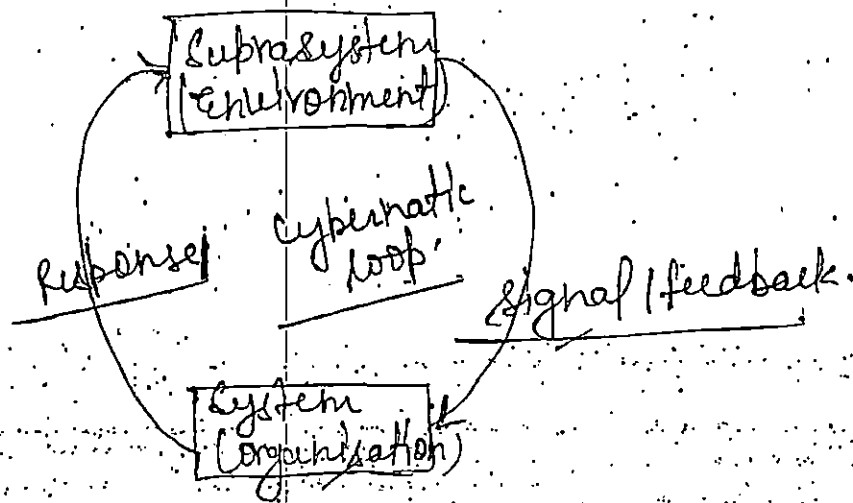 Suprasystem
(Environment)
Response
Cybernatic
loop
Signal / feedback.
System
(organisation)